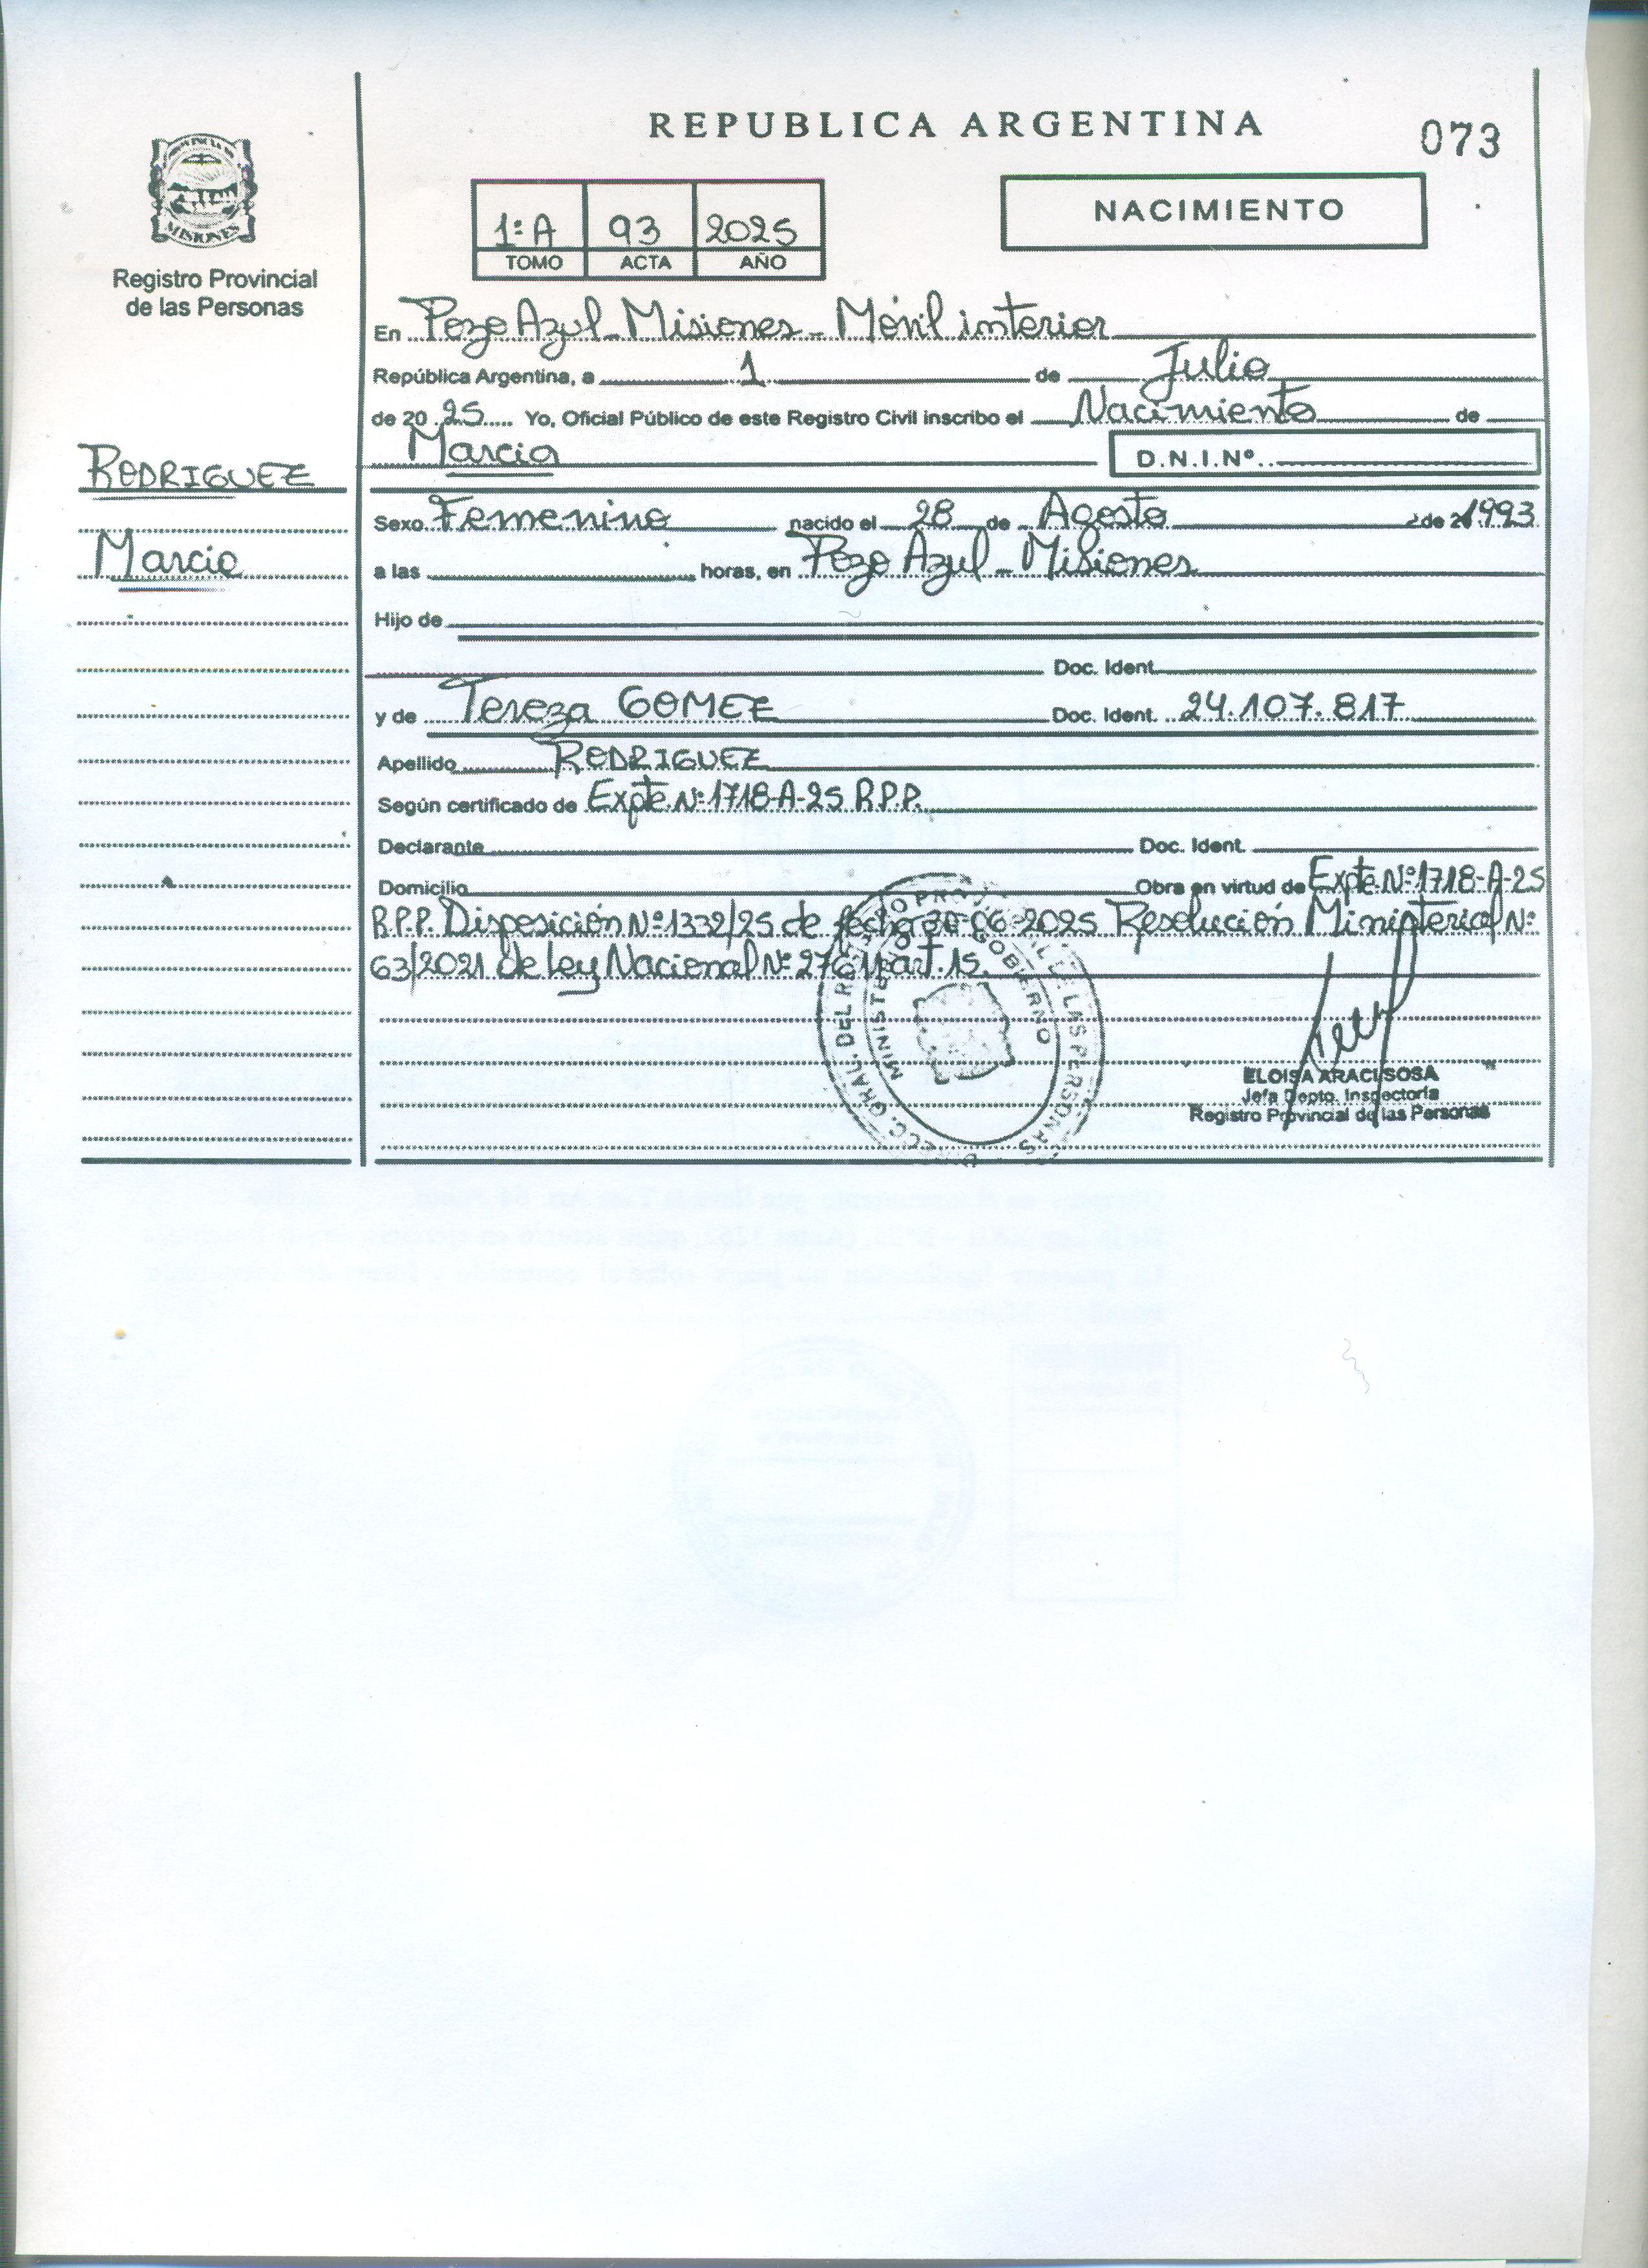 REPUBLICA ARGENTINA
073
PROVINCIA DE
MISIONES
Registro Provincial
de las Personas
1ª A 93 2025
TOMO ACTA AÑO
NACIMIENTO
En Pozo Azul - Misiones - Móvil interior
República Argentina, a 1 de Julio
de 20 25 Yo, Oficial Público de este Registro Civil inscribo el Nacimiento de
Marcia D.N.I.Nº
RODRIGUEZ
Marcia
Sexo Femenino nacido el 28 de Agosto de 1993
a las horas, en Pozo Azul - Misiones
Hijo de
Doc. Ident.
y de Tereza GOMEZ Doc. Ident. 24.107.817
Apellido RODRIGUEZ
Según certificado de Expte. Nº 1718-A-25 R.P.P.
Declarante Doc. Ident.
Domicilio Obra en virtud de Expte. Nº 1718-A-25
R.P.P. Disposición Nº 1332/25 de fecha 30-06-2025 Resolución Ministerial Nº
63/2021 de Ley Nacional Nº art. 15.
GRAL. DEL LAS PERSONAS
MINISTERIO GOBIERNO
ELOISA ARACI SOSA
Jefa Depto. Inspectoría
Registro Provincial de las Personas